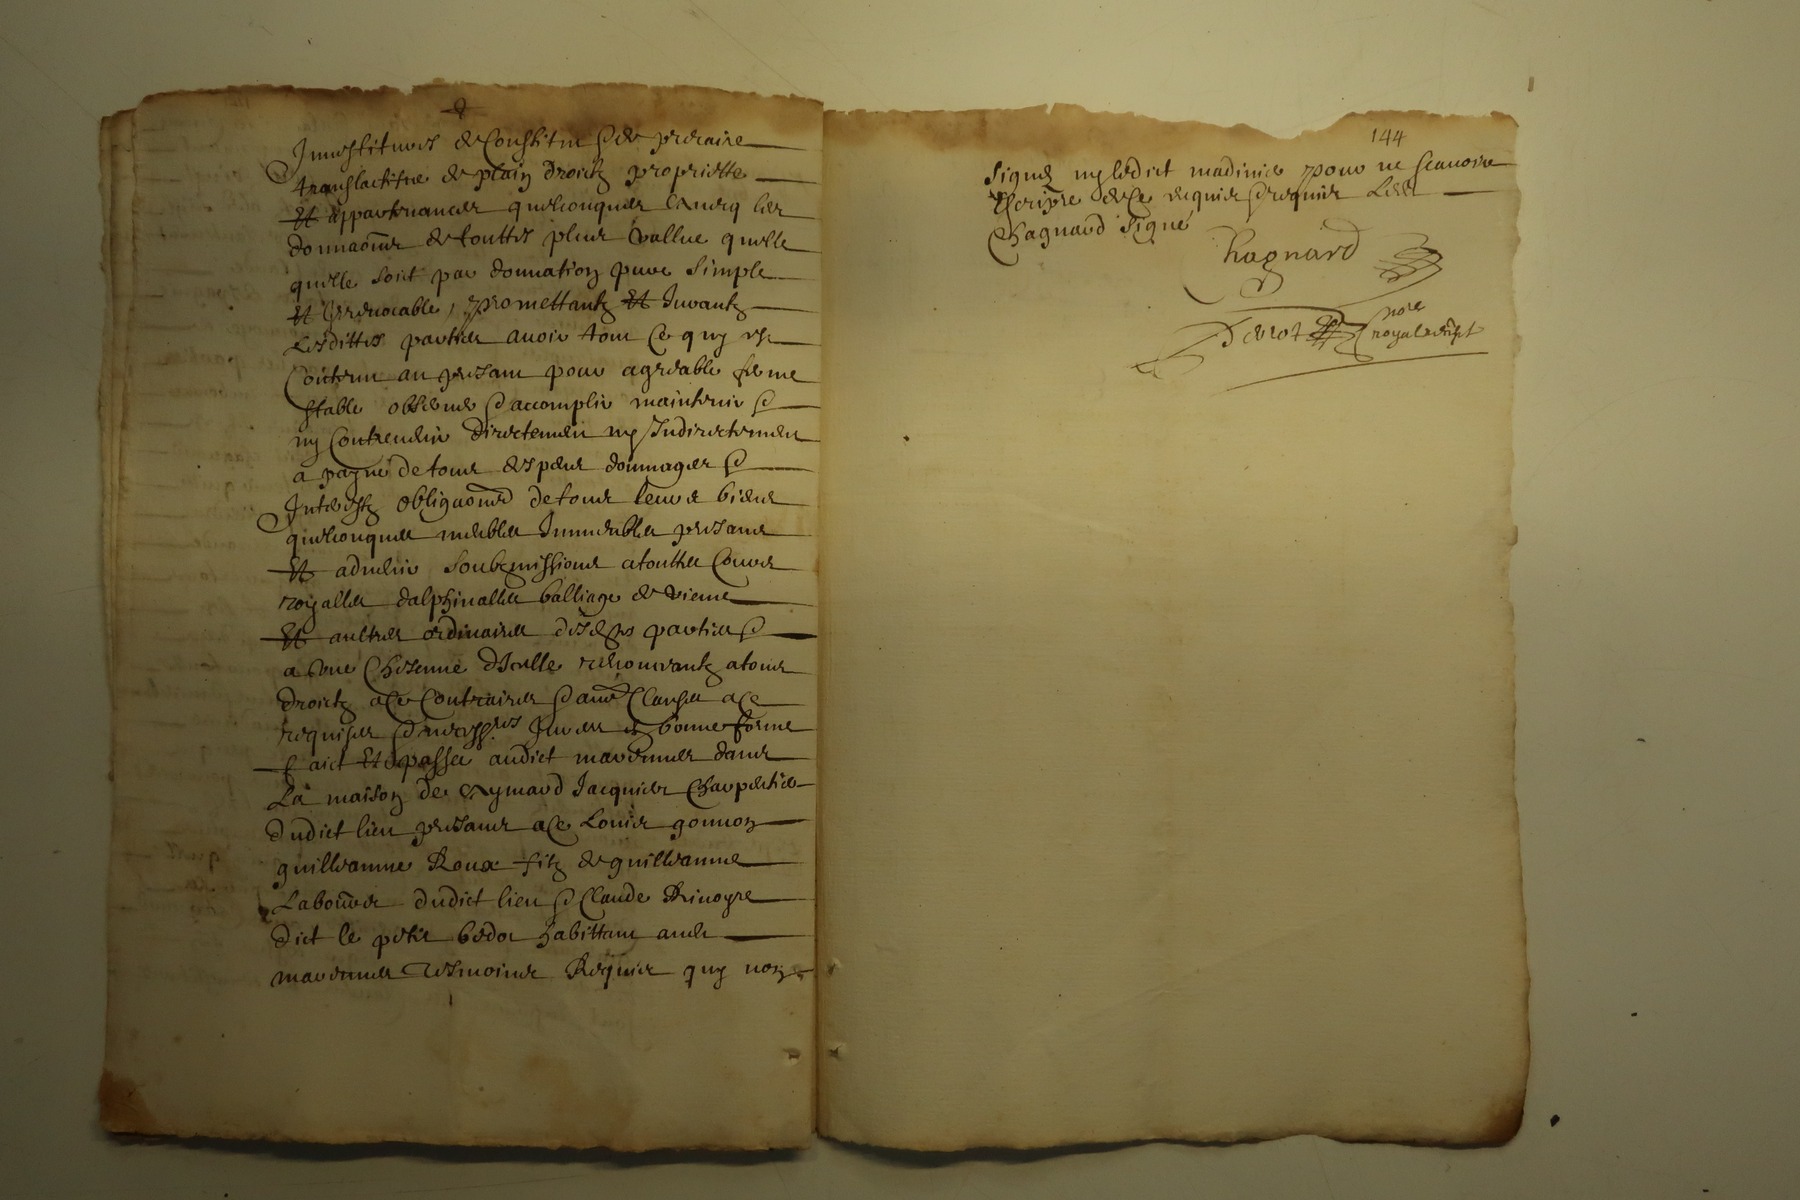 Investitures de Constitue & de precaire
translactifve de plain droictz proprietté
Et appartenances quelconques
donnaōnt de touttes plus vallue quelle
quelle soit par donnation pure simple
Et Irrevocable, promettantz Et Jurantz
Lesdittes parties avoir tout Ce quy est
Contenu au presant pour agreable ferme
stable observer & accomplir maintenir &
ny Contrevenir directement ny Indirectement
a payne de tous despens dommages &
Interestz obligaōns de tous leurs biens
quelconques meubles Immeubles presans
Et advenir soubzmissions a touttes Cours
royalles dalphinalles balliage de vienne
Et aultres ordinaires desdes parties &
a Une Chescune dIcelle renoncantz a tous
droictz a Ce Contraires & aues Clauses a Ce
requises & necessres Jures en bonne forme
faict Et passe audict marennes dans
La maison de Aymard Jacquier Charpentier
dudict lieu presans a Ce Louis gonnon
guilleaume Roux filz de guilleaume
Laboureur dudict lieu & Claude
dict le petit habittant aude
marennes Tesmoins Requis quy non
144
signé ny ledict madinier pour ne scavoir
Escripre de Ce requis & requis Led
Chagnard signé
Chagnard
nore
royal